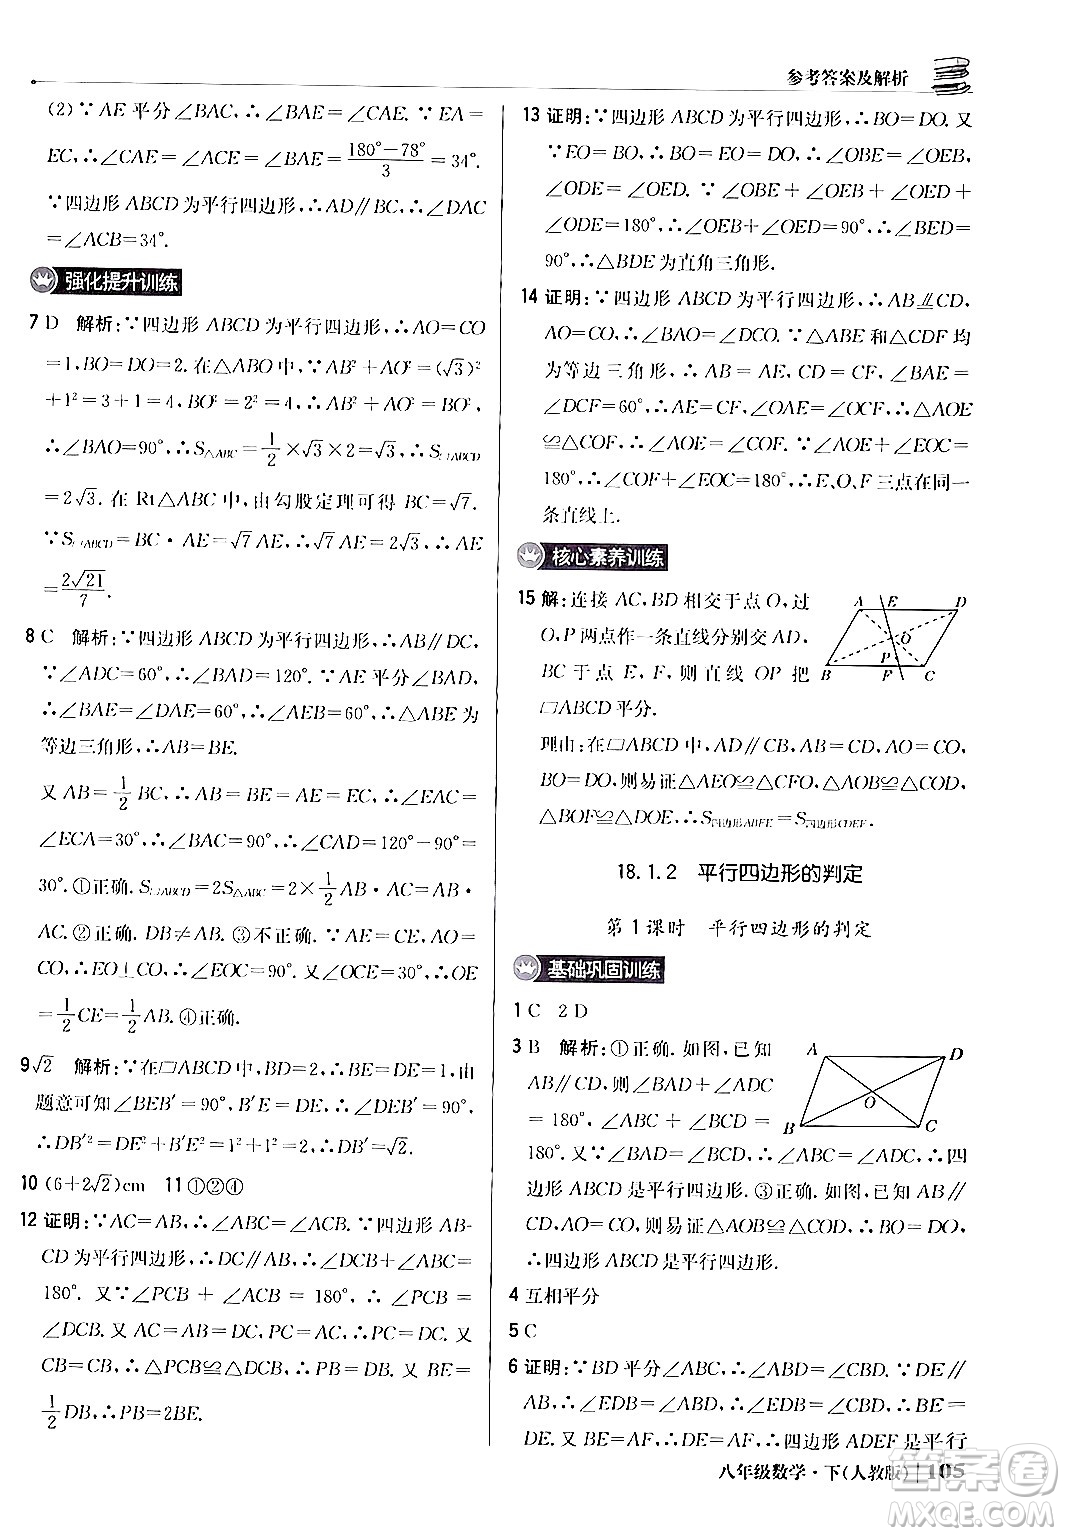 参考答案及解析
(2)∵AE平分∠BAC,∴∠BAE=∠CAE.∵EA=
EC,∴∠CAE=∠ACE=∠BAE=(180°-78°)/3=34°.
∵四边形ABCD为平行四边形,∴AD∥BC,∴∠DAC
=∠ACB=34°.
强化提升训练
7 D 解析:∵四边形ABCD为平行四边形,∴AO=CO
=1,BO=DO=2.在△ABO中,∵AB²+AO²=(√3)²
+1²=3+1=4,BO²=2²=4,∴AB²+AO²=BO²,
∴∠BAO=90°,∴S△ABC=1/2×√3×2=√3,∴S▱ABCD
=2√3.在Rt△ABC中,由勾股定理可得BC=√7.
∵S▱ABCD=BC·AE=√7AE,∴√7AE=2√3,∴AE
=2√21/7.
8 C 解析:∵四边形ABCD为平行四边形,∴AB∥DC,
∵∠ADC=60°,∴∠BAD=120°.∵AE平分∠BAD,
∴∠BAE=∠DAE=60°,∴∠AEB=60°,∴△ABE为
等边三角形,∴AB=BE.
又AB=1/2BC,∴AB=BE=AE=EC,∴∠EAC=
∠ECA=30°,∴∠BAC=90°,∴∠CAD=120°-90°
=30°.①正确.S▱ABCD=2S△ABC=2×1/2AB·AC=AB·
AC.②正确.DB≠AB.③不正确.∵AB=CE,AO=
CO,∴EO⊥CO,∴∠EOC=90°.又∠EAC=30°,∴OE
=1/2CE=1/2AB.④正确.
9 √2 解析:∵在▱ABCD中,BD=2,∴BE=DE=1,由
题意可知∠BEB′=90°,B′E=DE,∴∠DEB′=90°,
∴DB′²=DE²+B′E²=1²+1²=2,∴DB′=√2.
10 (6+2√2)cm 11 ①②④
12 证明:∵AC=AB,∴∠ABC=∠ACB.∵四边形AB-
CD为平行四边形,∴DC∥AB,∴∠DCB+∠ABC=
180°.又∵∠PCB+∠ACB=180°,∴∠PCB=
∠DCB.又AC=AB=DC,PC=AC,∴PC=DC.又
CB=CB,∴△PCB≌△DCB,∴PB=DB.又BE=
1/2DB,∴PB=2BE.
13 证明:∵四边形ABCD为平行四边形,∴BO=DO.又
∵EO=BO,∴BO=EO=DO,∴∠OBE=∠OEB,
∠ODE=∠OED.∵∠OBE+∠OEB+∠OED+
∠ODE=180°,∴∠OEB+∠OED=90°,∴∠BED=
90°.∴△BDE为直角三角形.
14 证明:∵四边形ABCD为平行四边形,∴AB⫽CD,
AO=CO,∴∠BAO=∠DCO.∵△ABE和△CDF均
为等边三角形,∴AB=AE,CD=CF,∠BAE=
∠DCF=60°,∴AE=CF,∠OAE=∠OCF,∴△AOE
≌△COF,∴∠AOE=∠COF.又∠AOE+∠EOC=
180°,∴∠COF+∠EOC=180°,∴E、O、F三点在同一
条直线上.
核心素养训练
15 解:连接AC,BD相交于点O,过
O,P两点作一条直线分别交AD,
BC于点E,F,则直线OP把
▱ABCD平分.
理由:在▱ABCD中,AD∥BC,AD=BC,AO=CO,
BO=DO,则易证△AEO≌△CFO,△AOB≌△COD,
△BOF≌△DOE,∴S四边形ABFE=S四边形CDEF.
A E D
O
P
B F C
18.1.2 平行四边形的判定
第1课时 平行四边形的判定
基础巩固训练
1 C 2 D
3 B 解析:①正确.如图,已知
AB∥CD,则∠BAD+∠ADC
=180°,∠ABC+∠BCD=
180°.又∵∠BAD=∠BCD,∴∠ABC=∠ADC,∴四
边形ABCD是平行四边形.③正确.如图,已知AB∥
CD,AO=CO,则易证△AOB≌△COD,∴BO=DO,
∴四边形ABCD是平行四边形.
A D
O
B C
4 互相平分
5 C
6 证明:∵BD平分∠ABC,∴∠ABD=∠CBD.∵DE∥
AB,∴∠EDB=∠ABD,∴∠EDB=∠CBD,∴BE=
DE.又AF=BE,∴AF=DE,∴四边形ADEF是平行
八年级数学·下(人教版) 105
答案圈
MXQE.COM